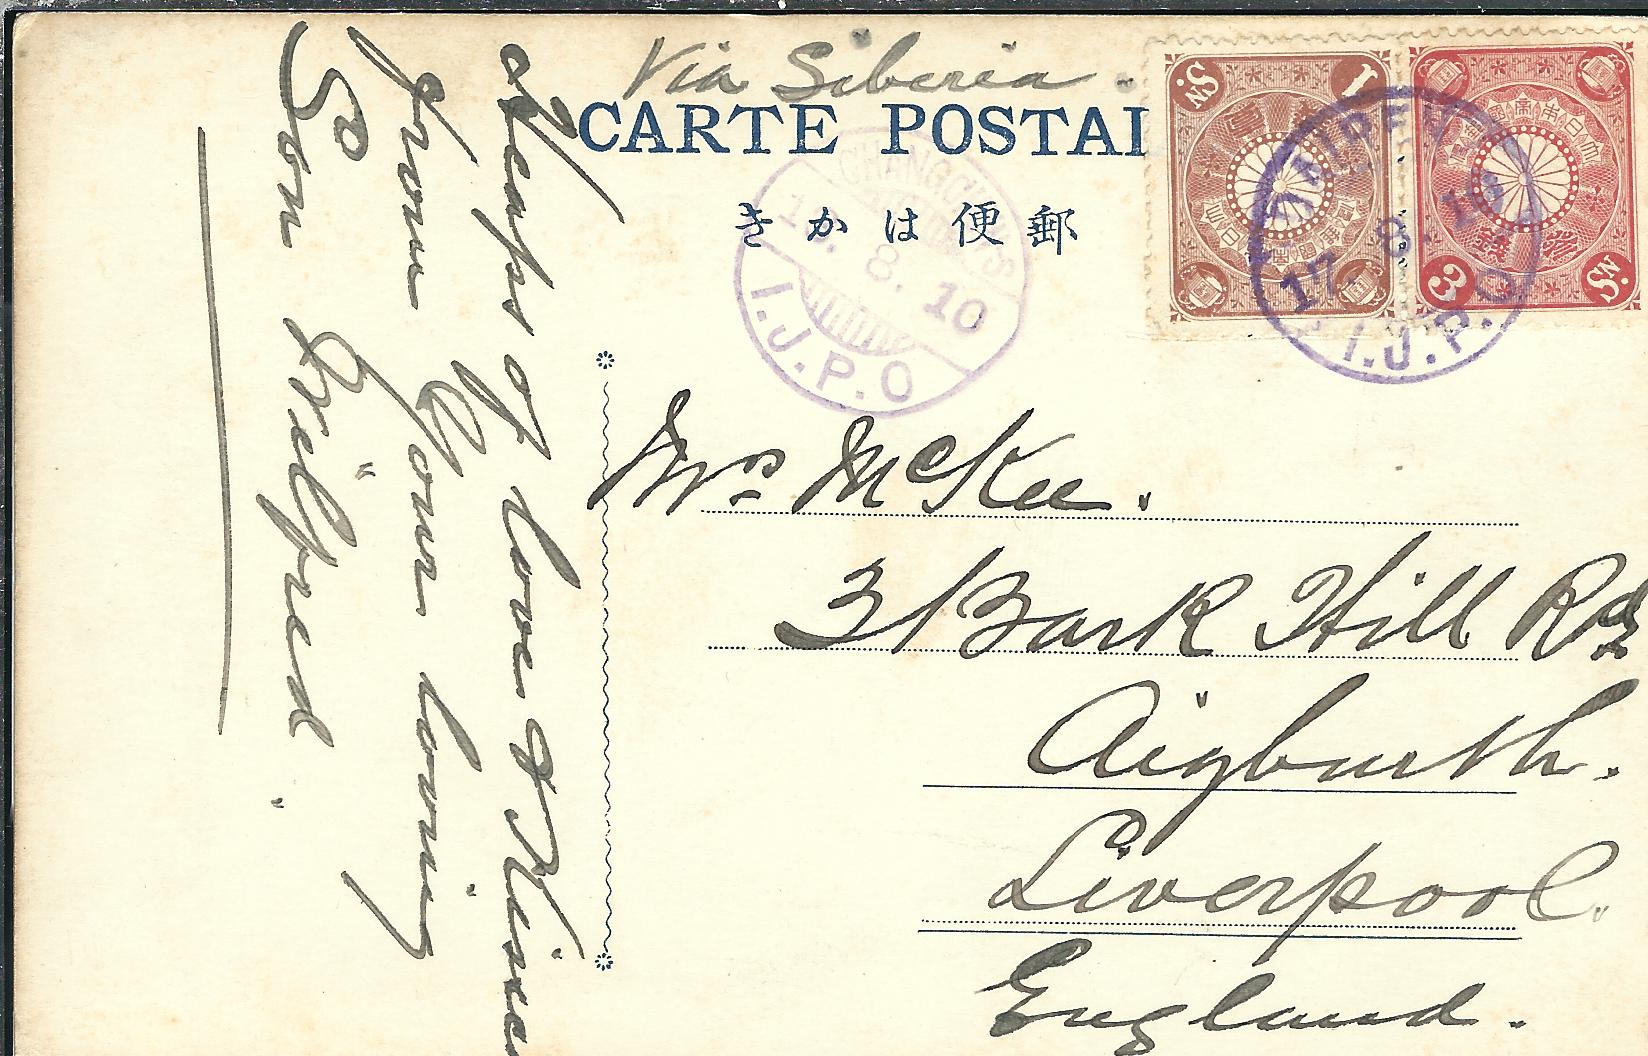 Via Siberia.
CARTE POSTAL
きかは便郵
CHANGCHUN
8. 10
I.J.P.O
1 Sn.
3 Sn.
17. 8. 10
I.J.P.O
Mrs McKee.
3 Bark Hill Rd
Aigburth.
Liverpool.
England.
Heaps of love & Kisses
from Your loving
Son Wilfred.